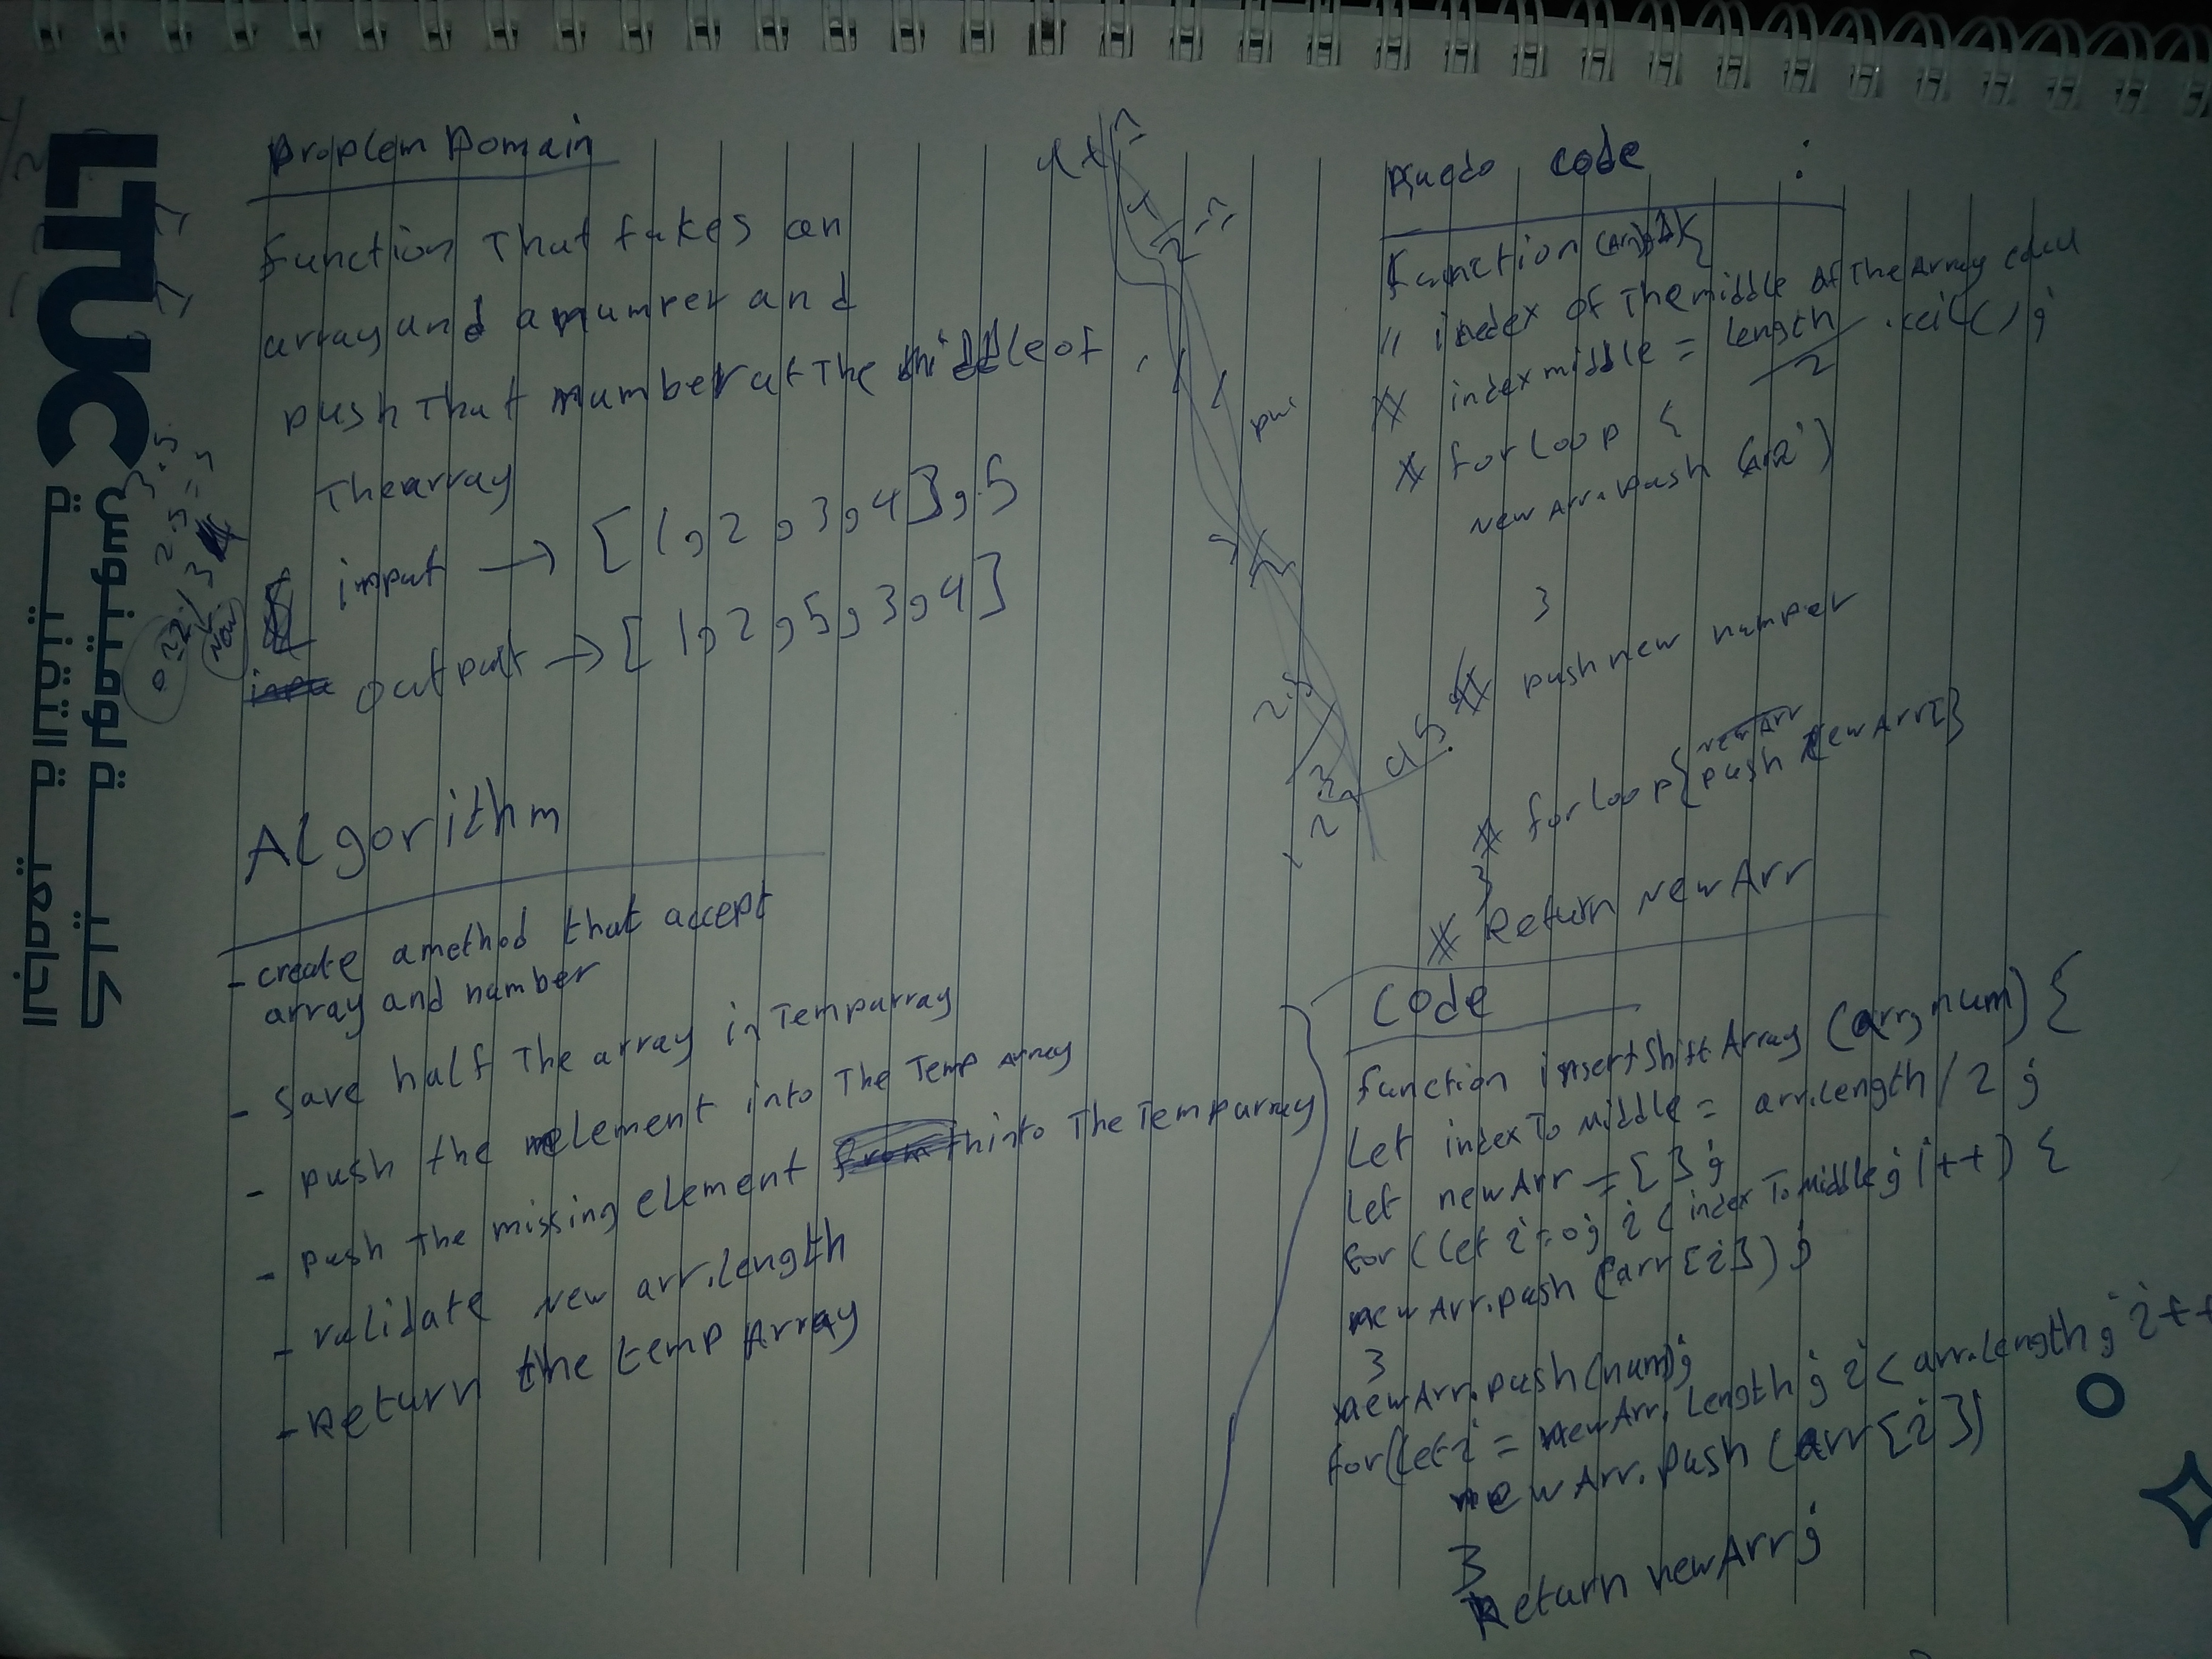 LTUC
كليـــــة لومينوس
الجامعيـــة التقنيـــة
Proplem Domain
Function That takes an
array and a numper and
push That number at The middle of
The array
input → [1,2,3,4],5
output → [1,2,5,3,4]
Algorithm
- create a method that accept
array and number
- Save half The array in Temparray
- push the element into The Temp array
- push the missing element into The Temparray
- validate New arr.length
- Return the temp Array
code :
function
// index of The middle of The Array
index middle = length / 2 .ceil();
for loop {
New Arr.push
}
push new numper
for loop {
}
Return New Arr
Code
function insertShiftArray (arr,num) {
Let indexToMiddle = arr.length / 2 ;
Let newArr = [];
for (Let i=0; i < indexToMiddle; i++) {
newArr.push (arr[i]);
}
newArr.push(num);
for(Let i = newArr.length; i < arr.length; i++
newArr.push (arr[i])
}
Return newArr;